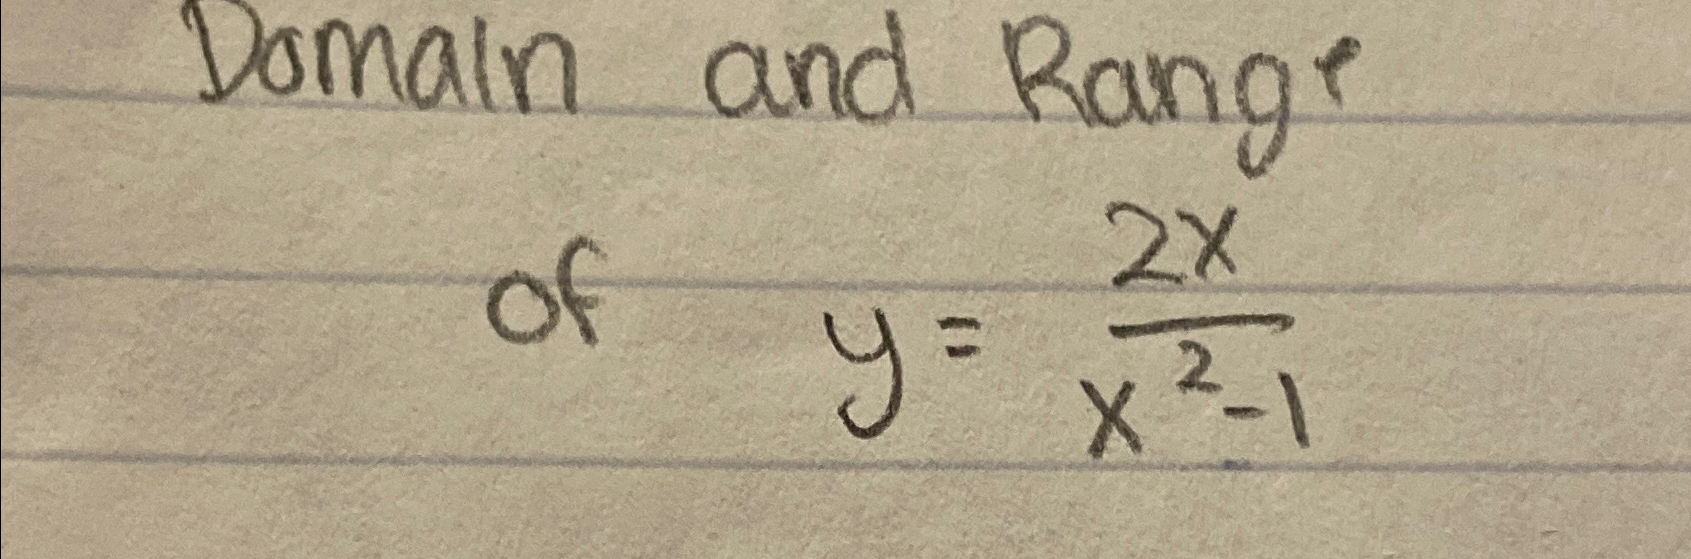 Domain and Range
of y = 2x / x² - 1